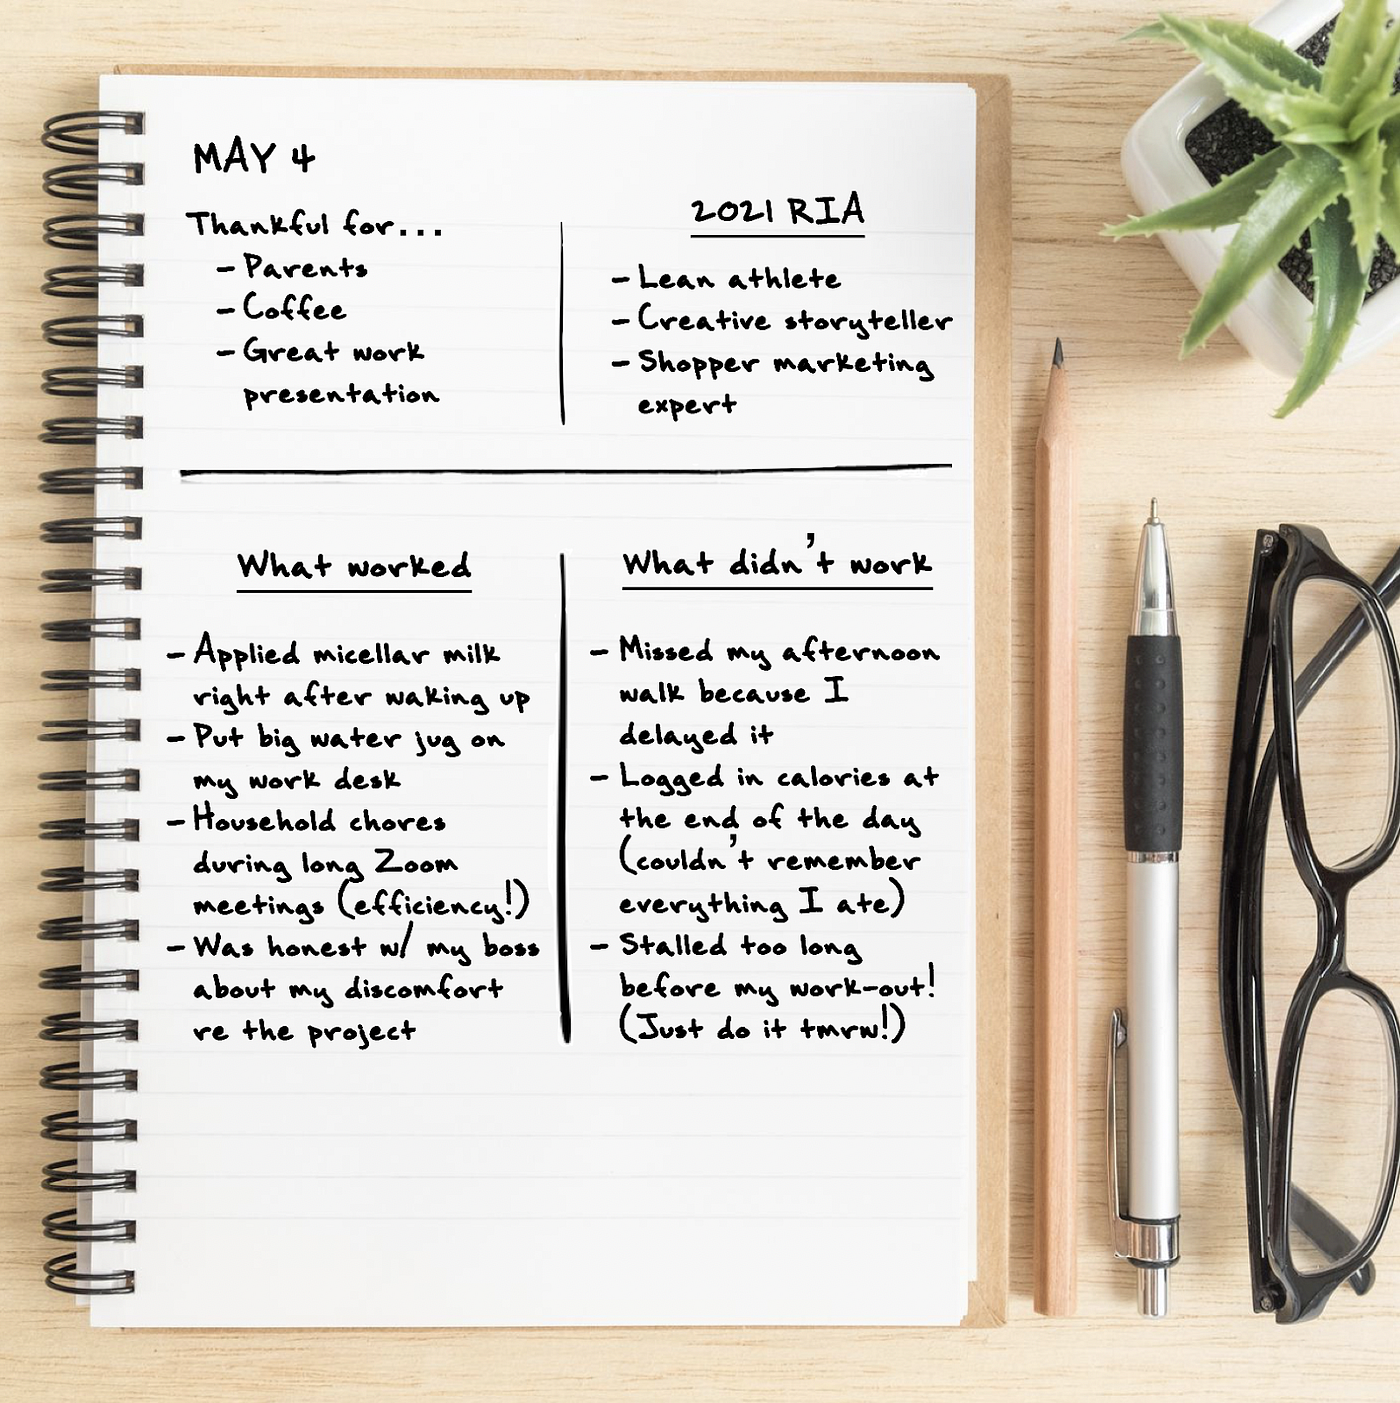 MAY 4
Thankful for...
- Parents
- Coffee
- Great work
presentation
2021 RIA
- Lean athlete
- Creative storyteller
- Shopper marketing
expert
What worked
- Applied micellar milk
right after waking up
- Put big water jug on
my work desk
- Household chores
during long Zoom
meetings (efficiency!)
- Was honest w/ my boss
about my discomfort
re the project
What didn't work
- Missed my afternoon
walk because I
delayed it
- Logged in calories at
the end of the day
(couldn't remember
everything I ate)
- Stalled too long
before my work-out!
(Just do it tmrw!)